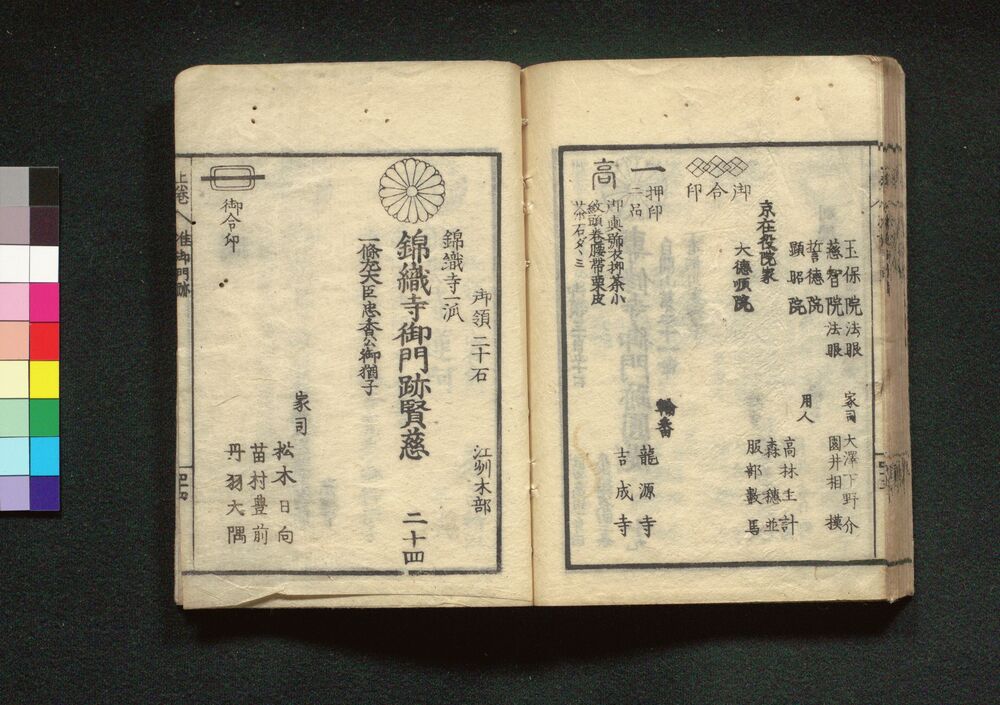 玉保院法眼
慈智院法眼
誓德院
顕昭院
家司
大澤下野介
園井相摸
用人
高林主計
森穗並
服部數馬
京在役院家
大德順院
御合印
一
押印
二品
高
御輿號花抑茶小
紋頭卷腰帶栗皮
茶石ダヽミ
輪番
龍源寺
吉成寺
御領二十石
江刕木部
錦織寺一派
錦織寺御門跡賢慈
二十四
一條左大臣忠香公御猶子
家司
松木日向
苗村豊前
丹羽大隅
御合印
上卷
准御門跡
四